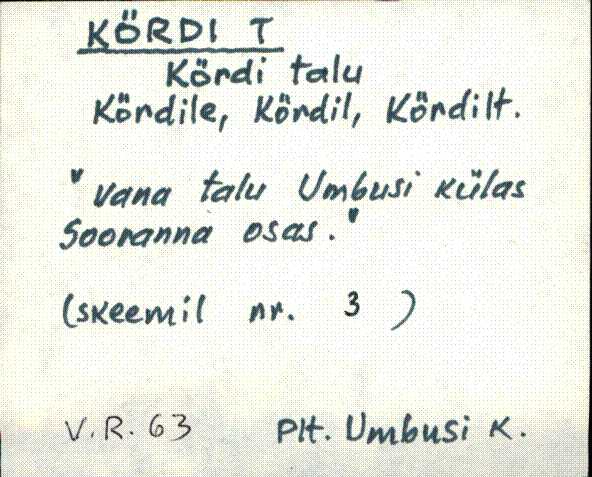 KÖRDI T
Kördi talu
Kördile, Kördil, Kördilt.
"Vana talu Umbusi külas
Sooranna osas."
(skeemil nr. 3)
V.R. 63 Plt. Umbusi K.